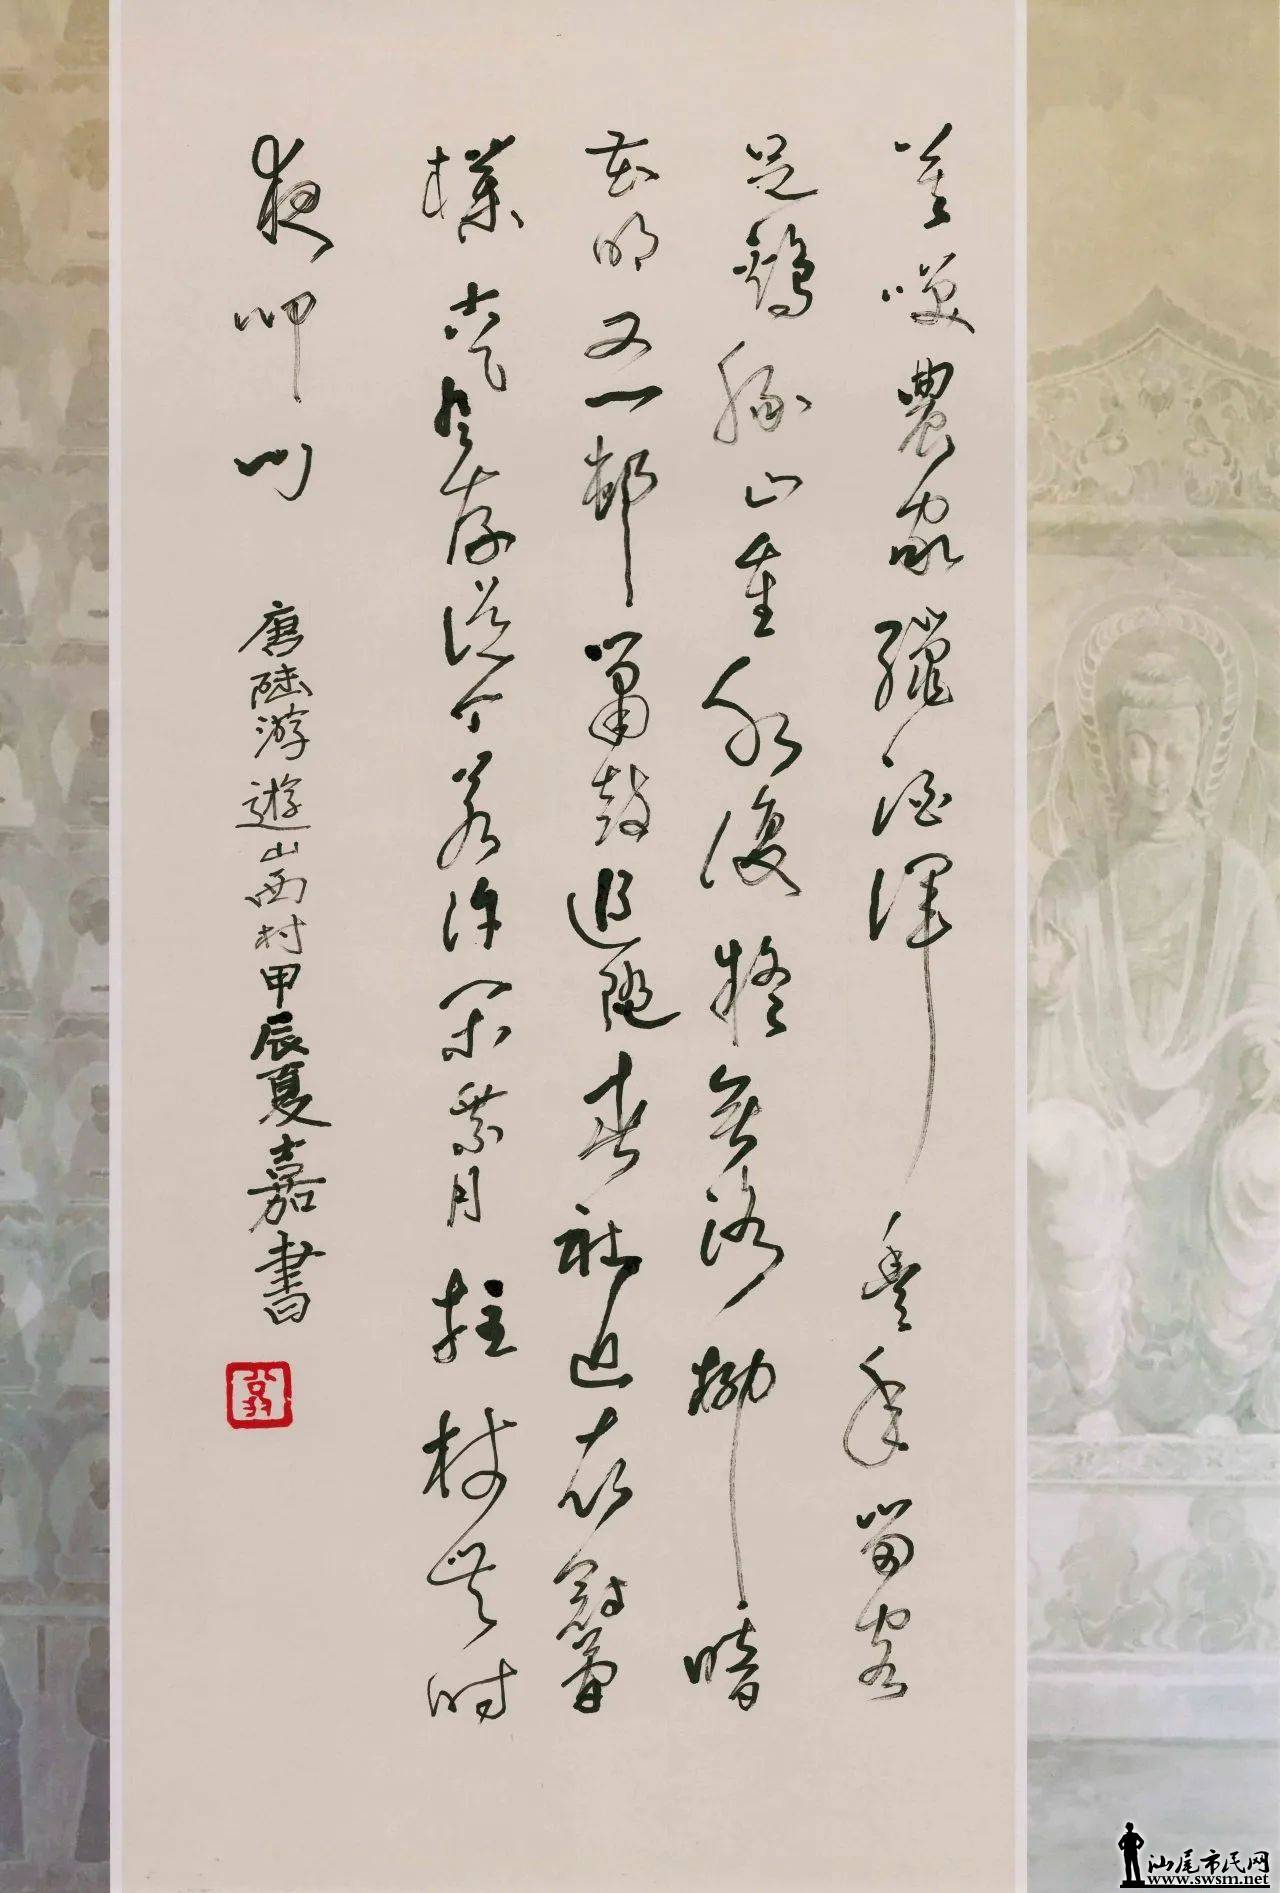 莫笑農家臘酒渾豐年留客
足鷄豚山重水復疑無路柳暗
花明又一邨簫鼓追隨春社近衣冠簡
樸古風存從今若許閑乘月拄杖無時
夜叩門
唐陸游遊山西村甲辰夏嘉書
汕尾市民网
www.swsm.net